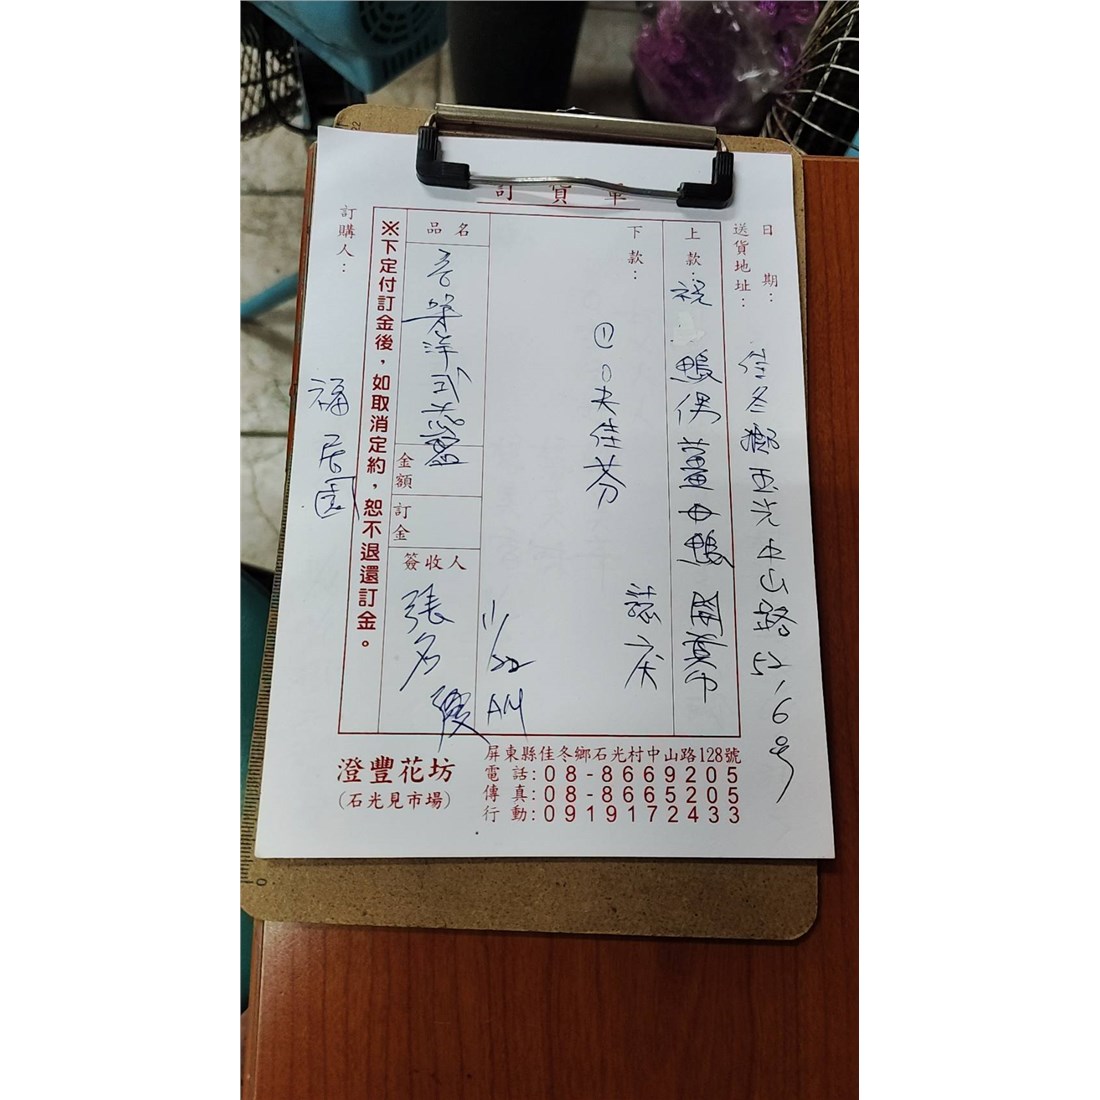 訂貨單
日期：
送貨地址：
佳冬鄉玉光中山路52,6號
上款：祝
鴨偶薑母鴨 開幕
下款：
佳芬
誌庆
品名
洋式
金額
訂金
簽收人
張
11/22
AM
※下定付訂金後，如取消定約，恕不退還訂金。
訂購人：
福居園
澄豐花坊
(石光見市場)
屏東縣佳冬鄉石光村中山路128號
電話:08-8669205
傳真:08-8665205
行動:0919172433